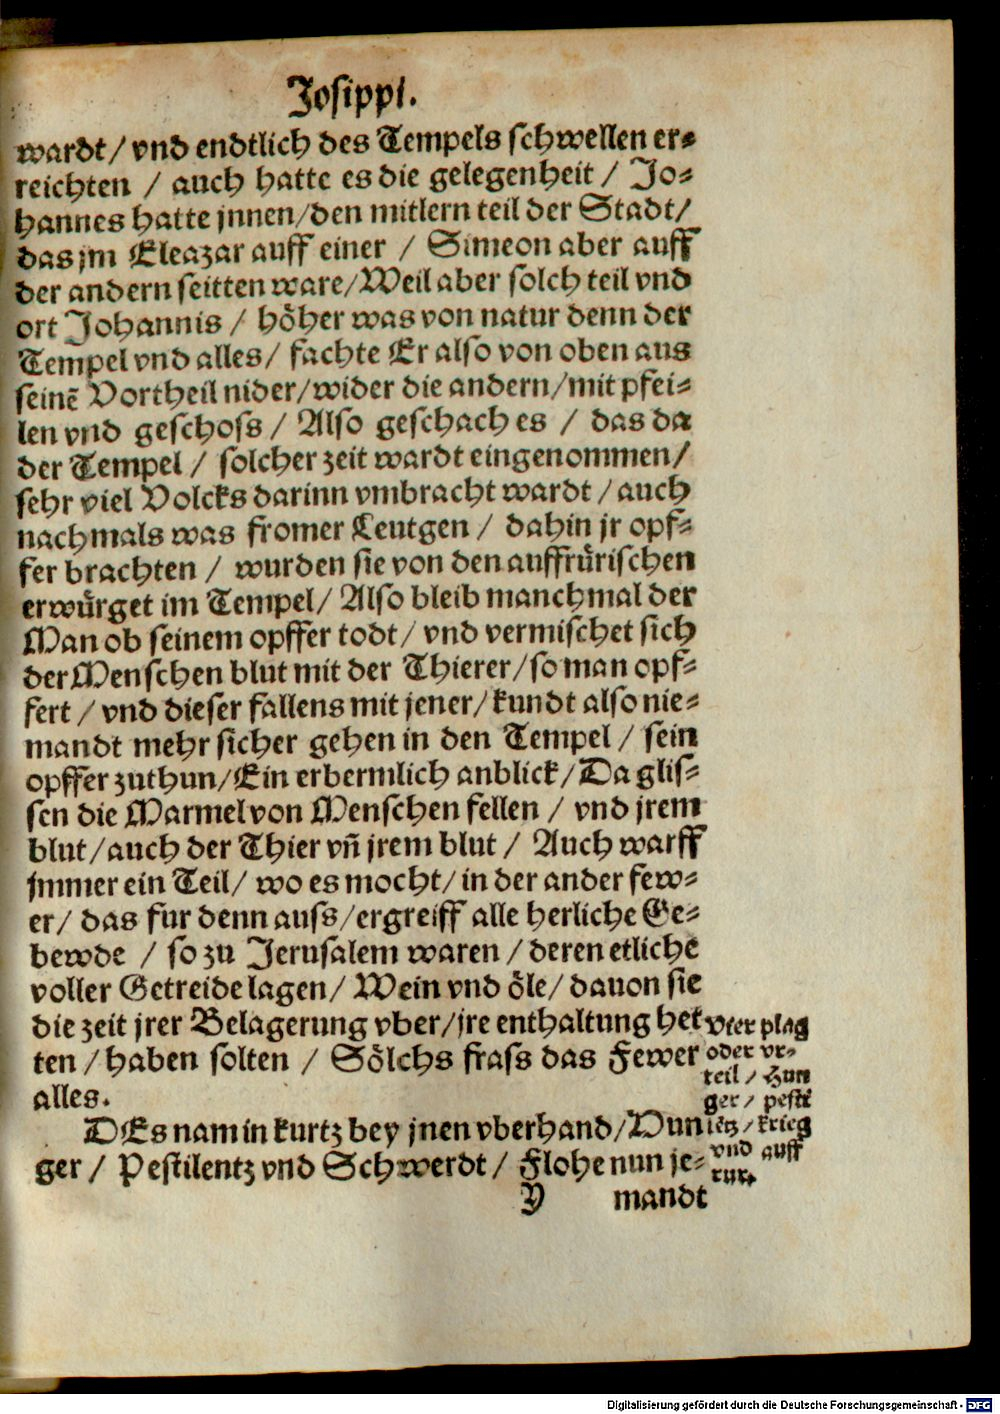 Josippi.
wardt / vnd endtlich des Tempels schwellen er⸗
reichten / auch hatte es die gelegenheit / Jo⸗
hannes hatte jnnen / den mitlern teil der Stadt /
das jm Eleazar auff einer / Simeon aber auff
der andern seitten ware / Weil aber solch teil vnd
ort Johannis / hoͤher was von natur denn der
Tempel vnd alles / fachte Er also von oben aus
seinē Vortheil nider / wider die andern / mit pfei⸗
len vnd geschoss / Also geschach es / das da
der Tempel / solcher zeit wardt eingenommen /
sehr viel Volcks darinn vmbracht wardt / auch
nachmals was fromer Leutgen / dahin jr opf⸗
fer brachten / wurden sie von den auffruͤrischen
erwuͤrget im Tempel / Also bleib manchmal der
Man ob seinem opffer todt / vnd vermischet sich
der Menschen blut mit der Thierer / so man opf⸗
fert / vnd dieser fallens mit jener / kundt also nie⸗
mandt mehr sicher gehen in den Tempel / sein
opffer zuthun / Ein erbermlich anblick / Da glis⸗
sen die Marmel von Menschen fellen / vnd jrem
blut / auch der Thier vñ jrem blut / Auch warff
jmmer ein Teil / wo es mocht / in der ander few⸗
er / das fur denn auss / ergreiff alle herliche Ge⸗
bewde / so zu Jerusalem waren / deren etliche
voller Getreide lagen / Wein vnd oͤle / dauon sie
die zeit jrer Belagerung vber / jre enthaltung het
ten / haben solten / Soͤlchs frass das Fewer
alles.
DEs nam in kurtz bey jnen vberhand / Hun
ger / Pestilentz vnd Schwerdt / Flohe nun je⸗
Y mandt
Vier plag
oder vr⸗
teil / Hun
ger / pesti
lētz / krieg
vnd auff
rur.
Digitalisierung gefördert durch die Deutsche Forschungsgemeinschaft - DFG